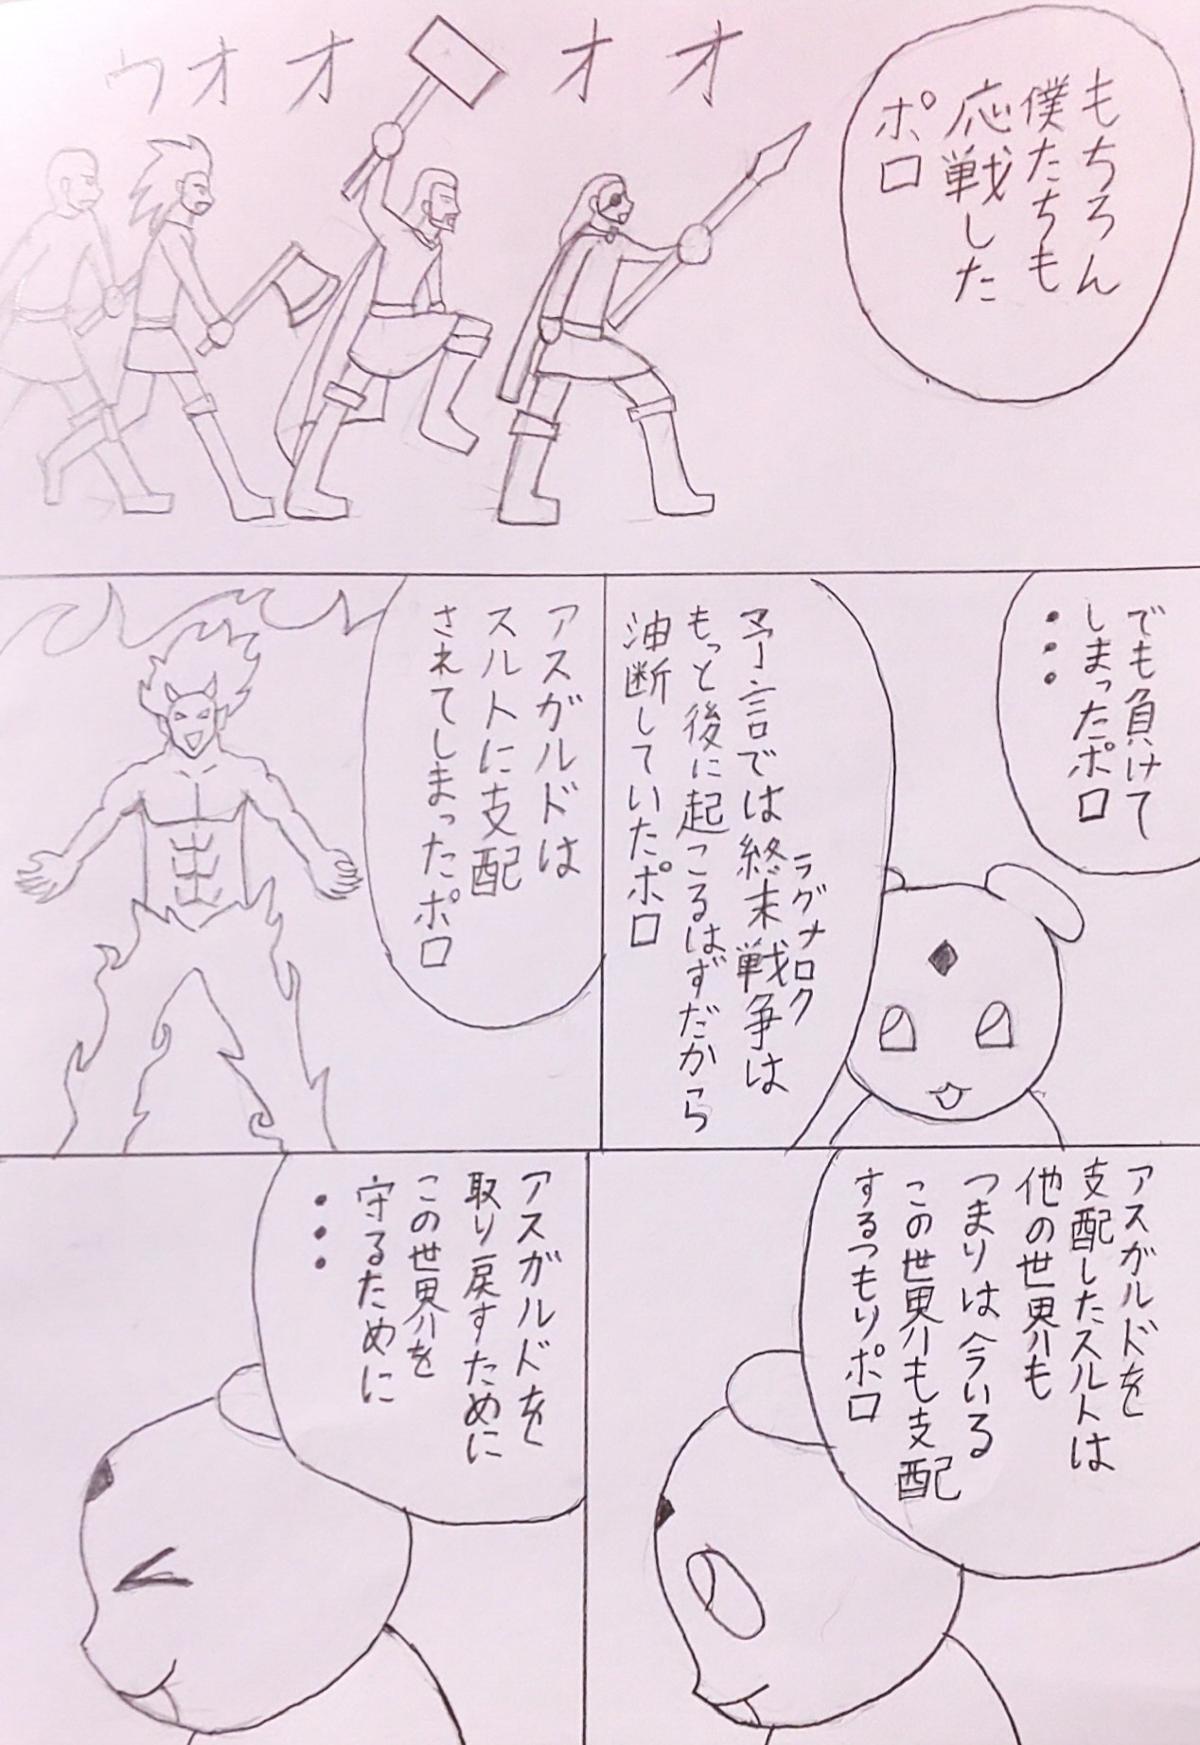 もちろん
僕たちも
応戦した
ポロ
ウオオオオ
でも負けて
しまったポロ
・・・
予言では終末戦争は
ラグナロク
もっと後に起こるはずだから
油断していたポロ
アスガルドは
スルトに支配
されてしまったポロ
アスガルドを
支配したスルトは
他の世界も
つまりは今いる
この世界も支配
するつもりポロ
アスガルドを
取り戻すために
この世界を
守るために
・・・